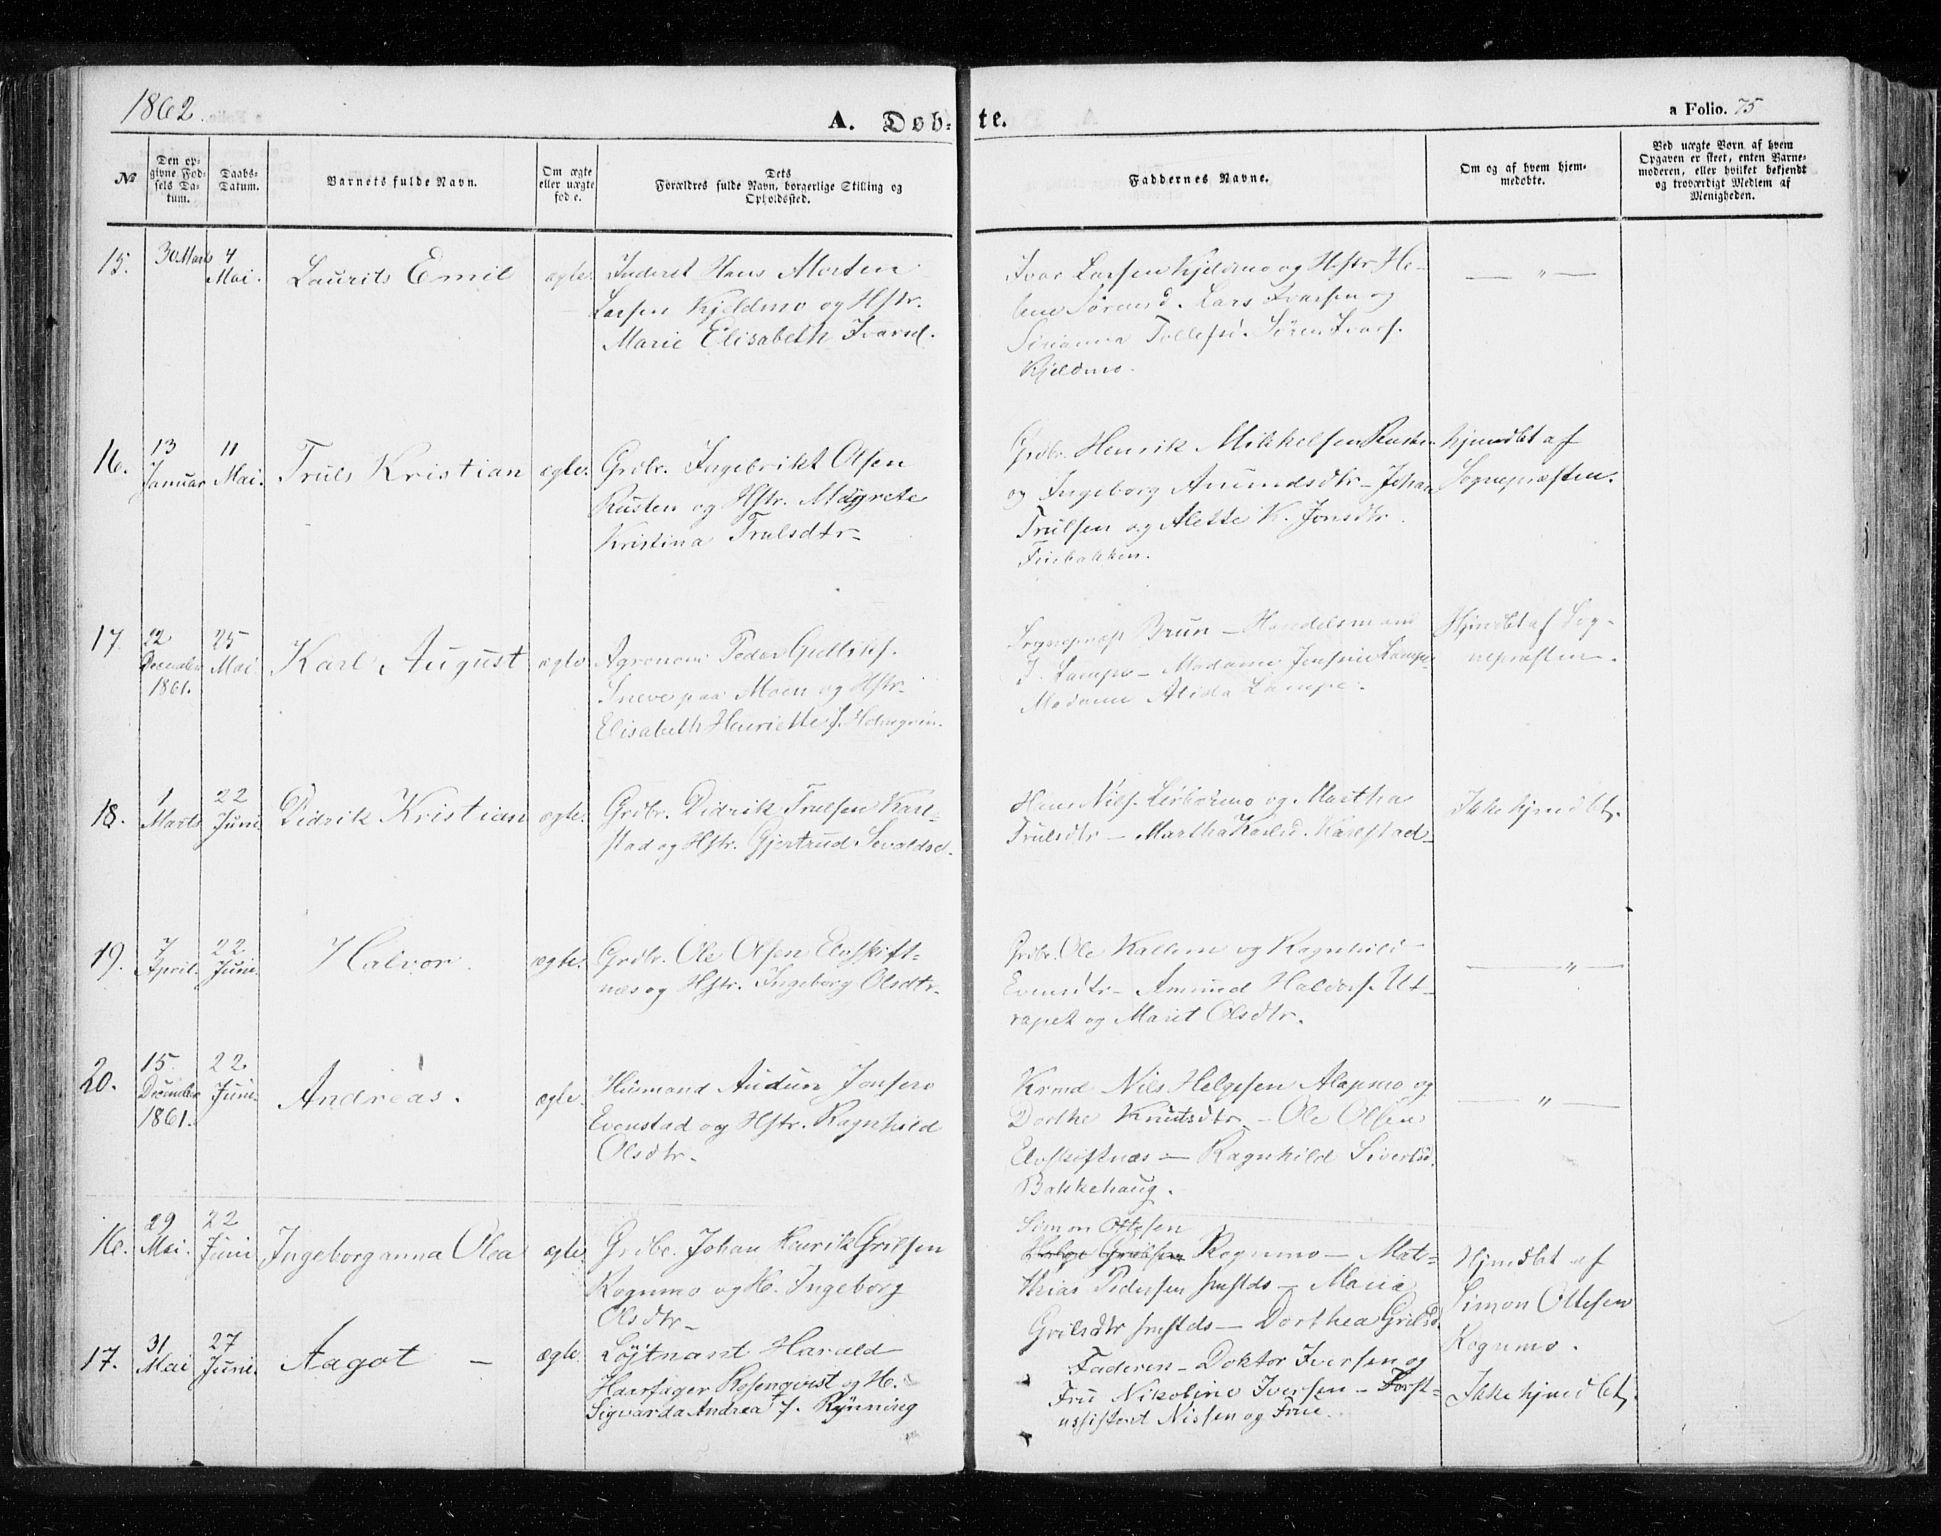 1862.
A. Døb-te.
a Folio. 75
№
Den op-
givne Fød-
sels Da-
tum.
Daabs-
Datum.
Barnets fulde Navn.
Om ægte
eller uægte
fød e.
Dets
Forældres fulde Navn, borgerlige Stilling og
Opholdssted.
Faddernes Navne.
Om og af hvem hjem-
medøbte.
Ved uægte Børn af hvem
Opgaven er skeet, enten Barne-
moderen, eller hvilket bekjendt
og troværdigt Medlem af
Menigheden.
15.
30 Marts
4
Mai.
Laurits Emil
ægte.
Inderst Hans Morten
Larsen Kjeldmo og Hstr.
Marie Elisabeth Ivarsd.
Ivar Larsen Kjeldmo og Hstr. He-
lene Sørensd. Lars Ivarsen og
Tollefsd. Søren Ivars.
Kjeldmo.
— " —
16.
13
Januar
11
Mai.
Truls Kristian
ægte.
Grdbr. Ingebrikt Olsen
Rusten og Hstr. Magrete
Kristina Trulsdtr-
Grdbr. Henrik Mikkelsen Rusten
og Ingeborg Amundsdtr - Johan
Trulsen og Alette K. Jonsdtr.
Furbakken.
Hjmdbt af
Sognepræsten.
17
22
December
1861.
25
Mai.
Karl August
ægte
Agronom Peder Gulliks.
Sneve paa Moen og Hstr.
Elisabeth Henriette J. Holmgren.
Sognepræst Brun - Handelsmand
J. Lampe - Madame Jensine Lampe
Madame Alida Lampe.
Hjmdbt af Sog-
nepræsten.
18.
1
Marts
22
Juni
Didrik Kristian
ægte.
Grdbr. Didrik Trulsen Karl-
stad og Hstr. Gjertrud Sevaldsd.
Hans Niels. og Martha
Trulsdtr - Martha Karlsd. Karlstad
Ikke hjmdbt.
19.
7
April.
22
Juni.
Halvor.
ægte.
Grdbr. Ole Olsen Elvskift-
næs og Hstr. Ingeborg Olsdtr.
Grdbr. Ole Kallem og Ragnhild
Evensdtr - Amund Haldors. Ut-
og Marit Olsdtr.
— " —
20.
15.
December
1861.
22
Juni.
Andreas.
ægte.
Husmand Audun Jonsen
Evenstad og Hstr. Ragnhild
Olsdtr.
Krmd Nils Helgesen Alapmo og
Dorthe Knutsdtr. - Ole Olsen
Elvskiftnæs - Ragnhild Sivertsd.
Bakkehaug.
— " —
16.
29
Mai.
22
Juni
Ingeborganna Olea
ægte.
Grdbr. Johan Henrik Grilsen
Rognmo og H. Ingeborg
Olsdtr-
Simon Ottesen
Rognmo - Mat-
thias Pedersen smstds - Maria
Grilsdtr smstds - Dorthea Grilsd.
Hjmdbt af
Simon Ottesen
Rognmo.
17.
31
Mai
27
Juni.
Aagot -
ægte
Løjtnant Harald
Haarfager Rosenqvist og H.
Sigvarda Andrea f. Rynning
Faderen - Doktor Iversen og
Fru Nikoline Iversen - Forst-
assistent Nissen og Frue.
Ikke hjmdbt.